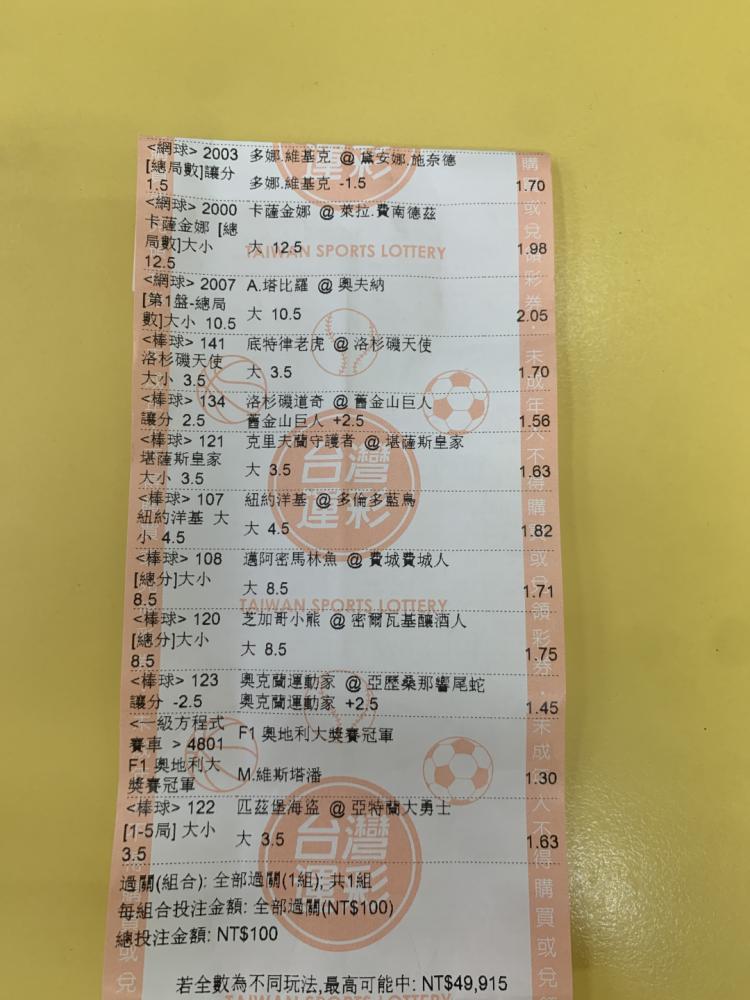 <網球> 2003 多娜.維基克 @ 黛安娜.施奈德
[總局數]讓分
1.5 多娜.維基克 -1.5 1.70
<網球> 2000 卡薩金娜 @ 萊拉.費南德茲
卡薩金娜 [總
局數]大小 大 12.5 1.98
12.5
TAIWAN SPORTS LOTTERY
<網球> 2007 A.塔比羅 @ 奧夫納
[第1盤-總局
數]大小 10.5 大 10.5 2.05
<棒球> 141 底特律老虎 @ 洛杉磯天使
洛杉磯天使
大小 3.5 大 3.5 1.70
<棒球> 134 洛杉磯道奇 @ 舊金山巨人
讓分 2.5 舊金山巨人 +2.5 1.56
<棒球> 121 克里夫蘭守護者 @ 堪薩斯皇家
堪薩斯皇家
大小 3.5 大 3.5 1.63
台灣
運彩
<棒球> 107 紐約洋基 @ 多倫多藍鳥
紐約洋基 大
小 4.5 大 4.5 1.82
<棒球> 108 邁阿密馬林魚 @ 費城費城人
[總分]大小
8.5 大 8.5 1.71
TAIWAN SPORTS LOTTERY
<棒球> 120 芝加哥小熊 @ 密爾瓦基釀酒人
[總分]大小
8.5 大 8.5 1.75
<棒球> 123 奧克蘭運動家 @ 亞歷桑那響尾蛇
讓分 -2.5 奧克蘭運動家 +2.5 1.45
<一級方程式
賽車 > 4801 F1 奧地利大獎賽冠軍
F1 奧地利大
獎賽冠軍 M.維斯塔潘 1.30
<棒球> 122 匹茲堡海盜 @ 亞特蘭大勇士
[1-5局] 大小
3.5 大 3.5 1.63
台灣
運彩
過關(組合): 全部過關(1組); 共1組
每組合投注金額: 全部過關(NT$100)
總投注金額: NT$100
若全數為不同玩法,最高可能中: NT$49,915
TAIWAN SPORTS LOTTERY
購或兌領彩券．未成年人不得購買或兌領彩券．未成年人不得購買或兌